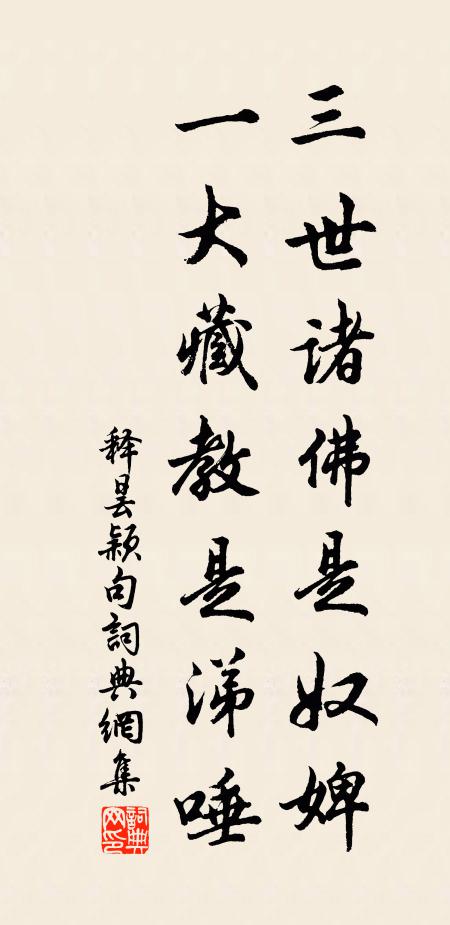 三世诸佛是奴婢
一大藏教是涕唾
释昙颖句詞典網集
詞典网印